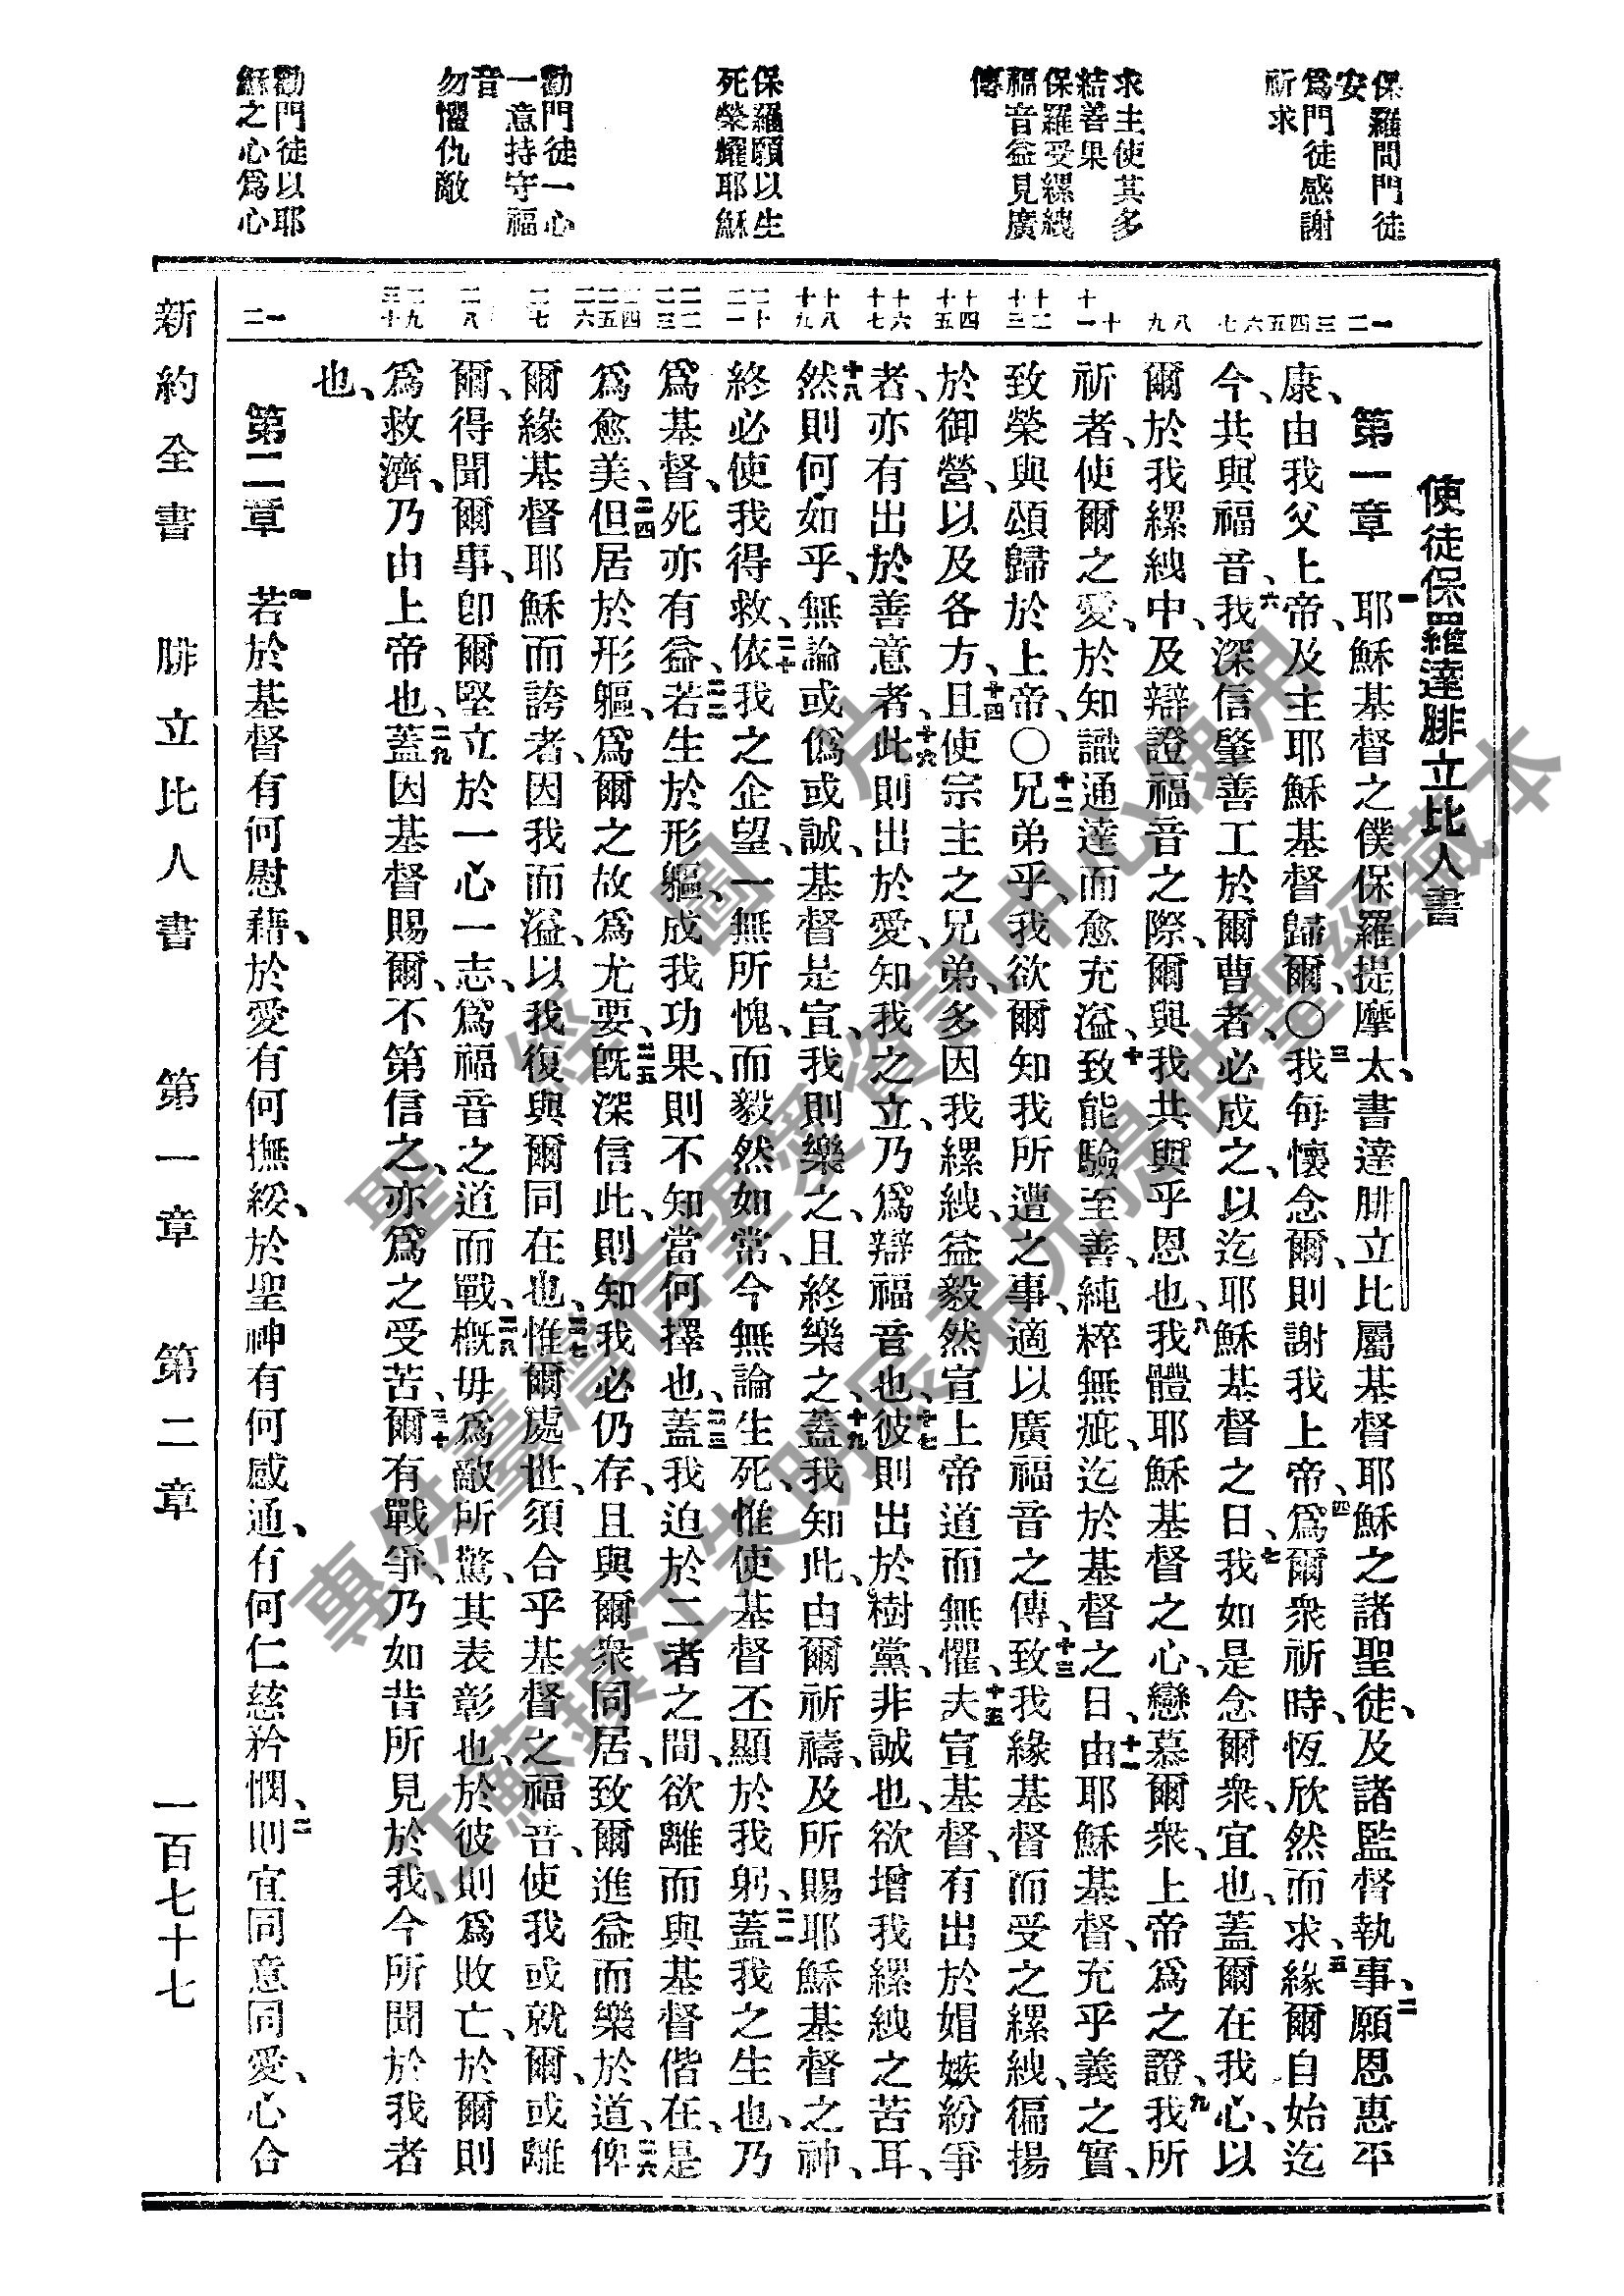 保羅問門徒
安
爲門徒感謝
祈求
求主使其多
結善果
保羅受縲絏
福音益見廣
傳
保羅願以生
死榮耀耶穌
勸門徒一心
一意持守福
音
勿懼仇敵
勸門徒以耶
穌之心爲心
使徒保羅達腓立比人書
第一章 一耶穌基督之僕保羅提摩太、書達腓立比屬基督耶穌之諸聖徒、及諸監督執事、二願恩惠平
康、由我父上帝、及主耶穌基督歸爾、〇三我每懷念爾、則謝我上帝、四爲爾衆祈時、恆欣然而求、五緣爾自始迄
今、共與福音、六我深信肇善工於爾曹者、必成之、以迄耶穌基督之日、七我如是念爾衆、宜也、蓋爾在我心、以
爾於我縲絏中、及辯證福音之際、爾與我共與乎恩也、八我體耶穌基督之心、戀慕爾衆、上帝爲之證、九我所
祈者、使爾之愛、於知識通達而愈充溢、十致能驗至善、純粹無疵、迄於基督之日、十一由耶穌基督、充乎義之實、
致榮與頌歸於上帝、〇十二兄弟乎、我欲爾知我所遭之事、適以廣福音之傳、十三致我緣基督而受之縲絏、徧揚
於御營、以及各方、十四且使宗主之兄弟、多因我縲絏、益毅然宣上帝道而無懼、十五夫宣基督、有出於媢嫉紛爭
者、亦有出於善意者、十六此則出於愛、知我之立、乃爲辯福音也、十七彼則出於樹黨、非誠也、欲增我縲絏之苦耳、
十八然則何如乎、無論或僞或誠、基督是宣、我則樂之、且終樂之、十九蓋我知此、由爾祈禱、及所賜耶穌基督之神、
終必使我得救、二十依我之企望、一無所愧、而毅然如常、今無論生死、惟使基督丕顯於我躬、二一蓋我之生也、乃
爲基督、死亦有益、二二若生於形軀、成我功果、則不知當何擇也、二三蓋我迫於二者之間、欲離而與基督偕在、是
爲愈美、二四但居於形軀、爲爾之故爲尤要、二五旣深信此、則知我必仍存、且與爾衆同居、致爾進益而樂於道、二六俾
爾緣基督耶穌而誇者、因我而溢、以我復與爾同在也、二七惟爾處世、須合乎基督之福音、使我或就爾、或離
爾、得聞爾事、卽爾堅立於一心一志、爲福音之道而戰、二八槪毋爲敵所驚、其表彰也、於彼則爲敗亡、於爾則
爲救濟、乃由上帝也、二九蓋因基督賜爾、不第信之、亦爲之受苦、三十爾有戰爭、乃如昔所見於我、今所聞於我者
也、
第二章 一若於基督有何慰藉、於愛有何撫綏、於聖神有何感通、有何仁慈矜憫、二則宜同意同愛、心合
新約全書 腓立比人書 第一章 第二章 一百七十七
聖經圖片
專供臺灣信望愛資訊中心使用
江蘇鎮江朱明辰弟兄提供聖經藏本